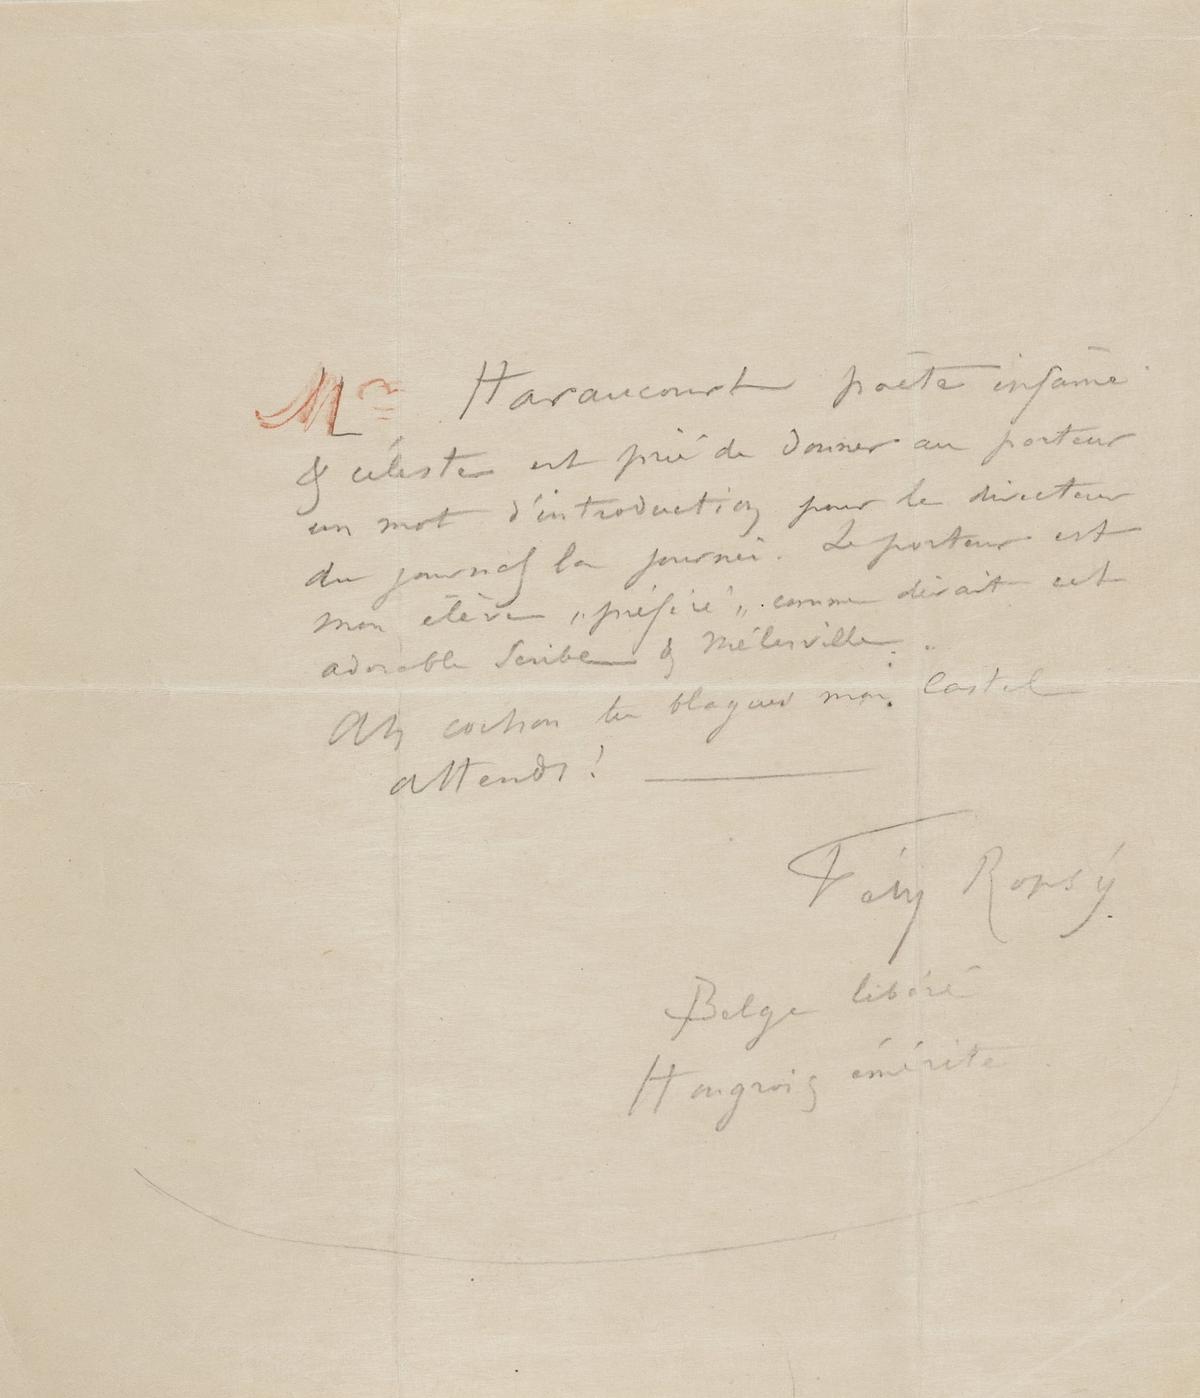 Mr Haraucourt poète infâme
& céleste est prié de donner au porteur
un mot d'introduction pour le directeur
du journal la journée. Le porteur est
mon élève „préféré„ comme dirait cet
adorable Scribe & Mélesville..
Ah cochon tu blagues mon Castel
attends!
Fély Ropsÿ.
Belge libéré
Hongrois émérite